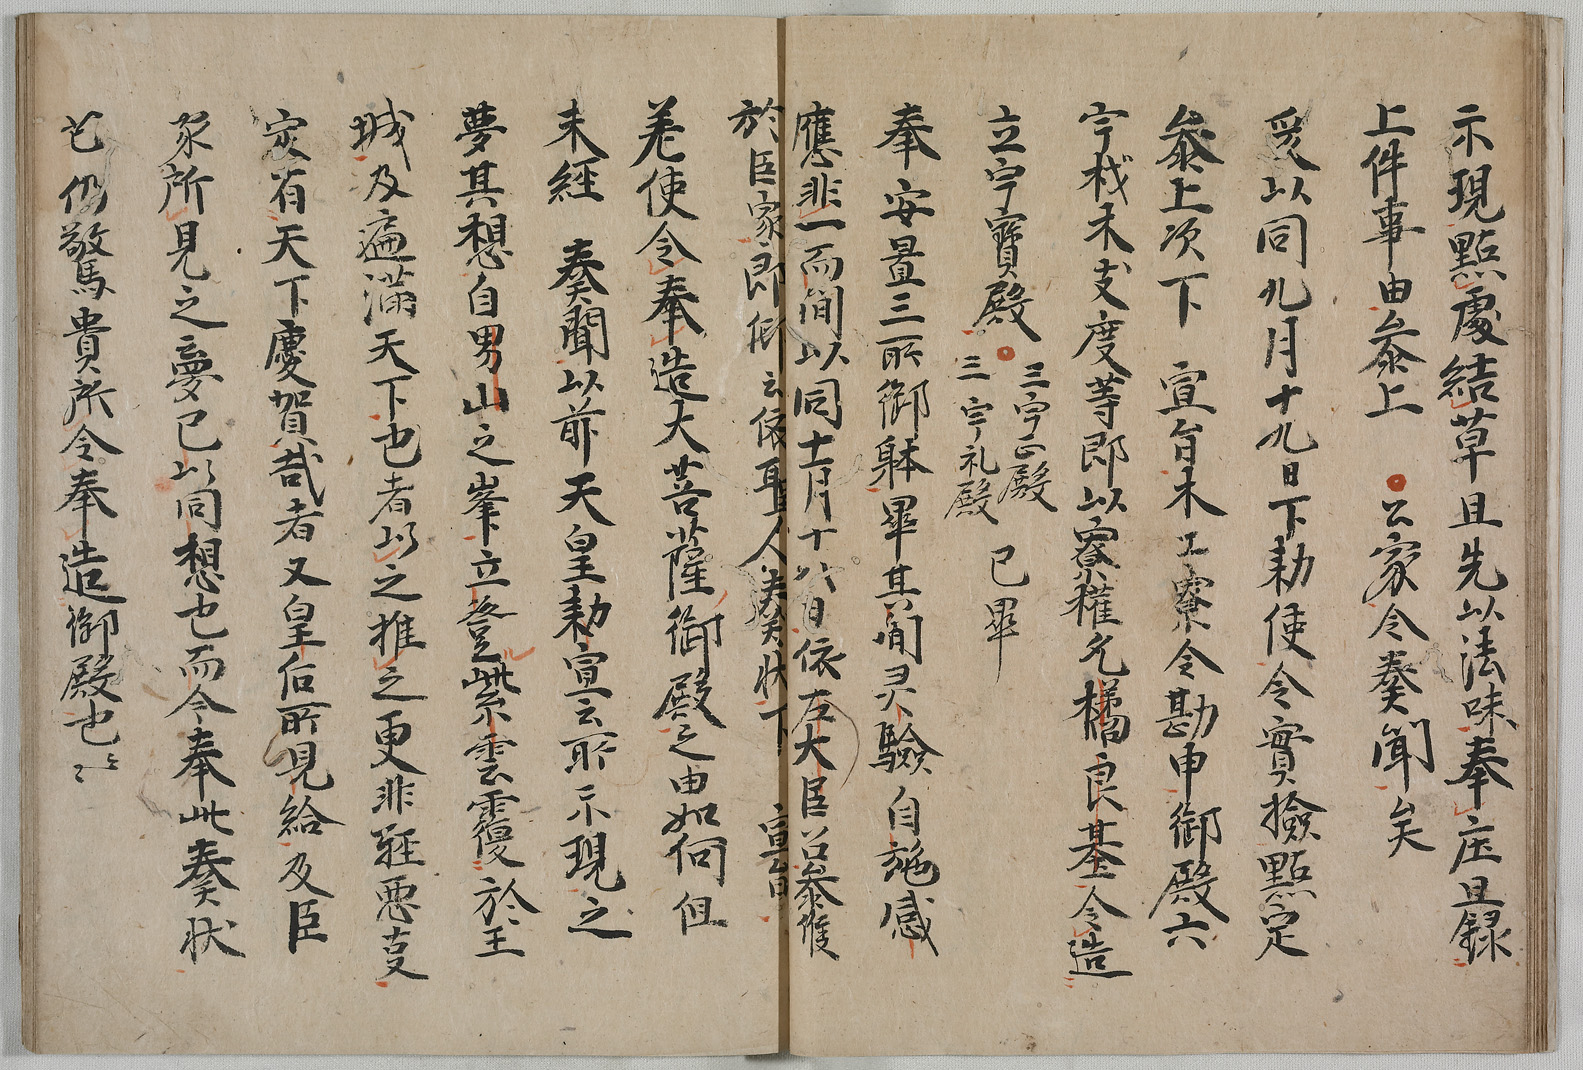 示現點處結草且先以法味奉庄且録
上件事由叅上　公家令奏聞矣
爰以同九月十九日下勅使令實撿點定
叅上次下　宣旨木工寮令勘申御殿六
宇材木支度等即以寮権允橘良基令造
立六宇寶殿三宇正殿三宇礼殿已畢
奉安置三所御躰畢其間灵驗自施感
應非一而間以同十一月十八日依左大臣召叅候
於臣家即仰云依聖人奏状下　宣旨
差使令奉造大菩薩御殿之由如何但
未経　奏聞以前天皇勅宣云所示現之
夢其想自男山之峯立登紫雲覆於王
城及遍満天下也者以之推之更非軽悪事
定有天下慶賀哉者又皇后所見給及臣
家所見之夢已以同想也而今奉此奏状
乍仰驚貴所令奉造御殿也云々